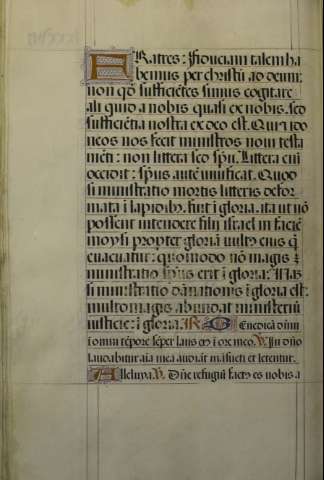 FRatres: Fiduciam talem ha
bemus per christū ad deum:
non qđ sufficiētes simus cogitare
aliquid a nobis quasi ex nobis. sed
sufficiētia nostra ex deo est. Qui ido
neos nos fecit ministros noui testa
mēti: non littera sed spū. Littera eni
occidit: spūs autē uiuificat. Quod
si ministratio mortis litteris defor
mata i lapidib; fuit i gloria. ita ut nō
possent intendere filij israel in faciē
moysi propter gloriā uultꝰ eius q̄
euacuatur: quomodo nō magis
ministratio spūs erit i gloria: Nā
si ministratio dānationis i gloria est:
multomagis abundat ministeriū
iusticie: i gloria. R̄ Benedicā dnm
i omni tēpore sēper laus eꝰ i ore meo. V. In dno
laudabitur aīa mea audiāt māsueti et letentur.
Alleluya. V. Dñe refugiū factꝰ es nobis a